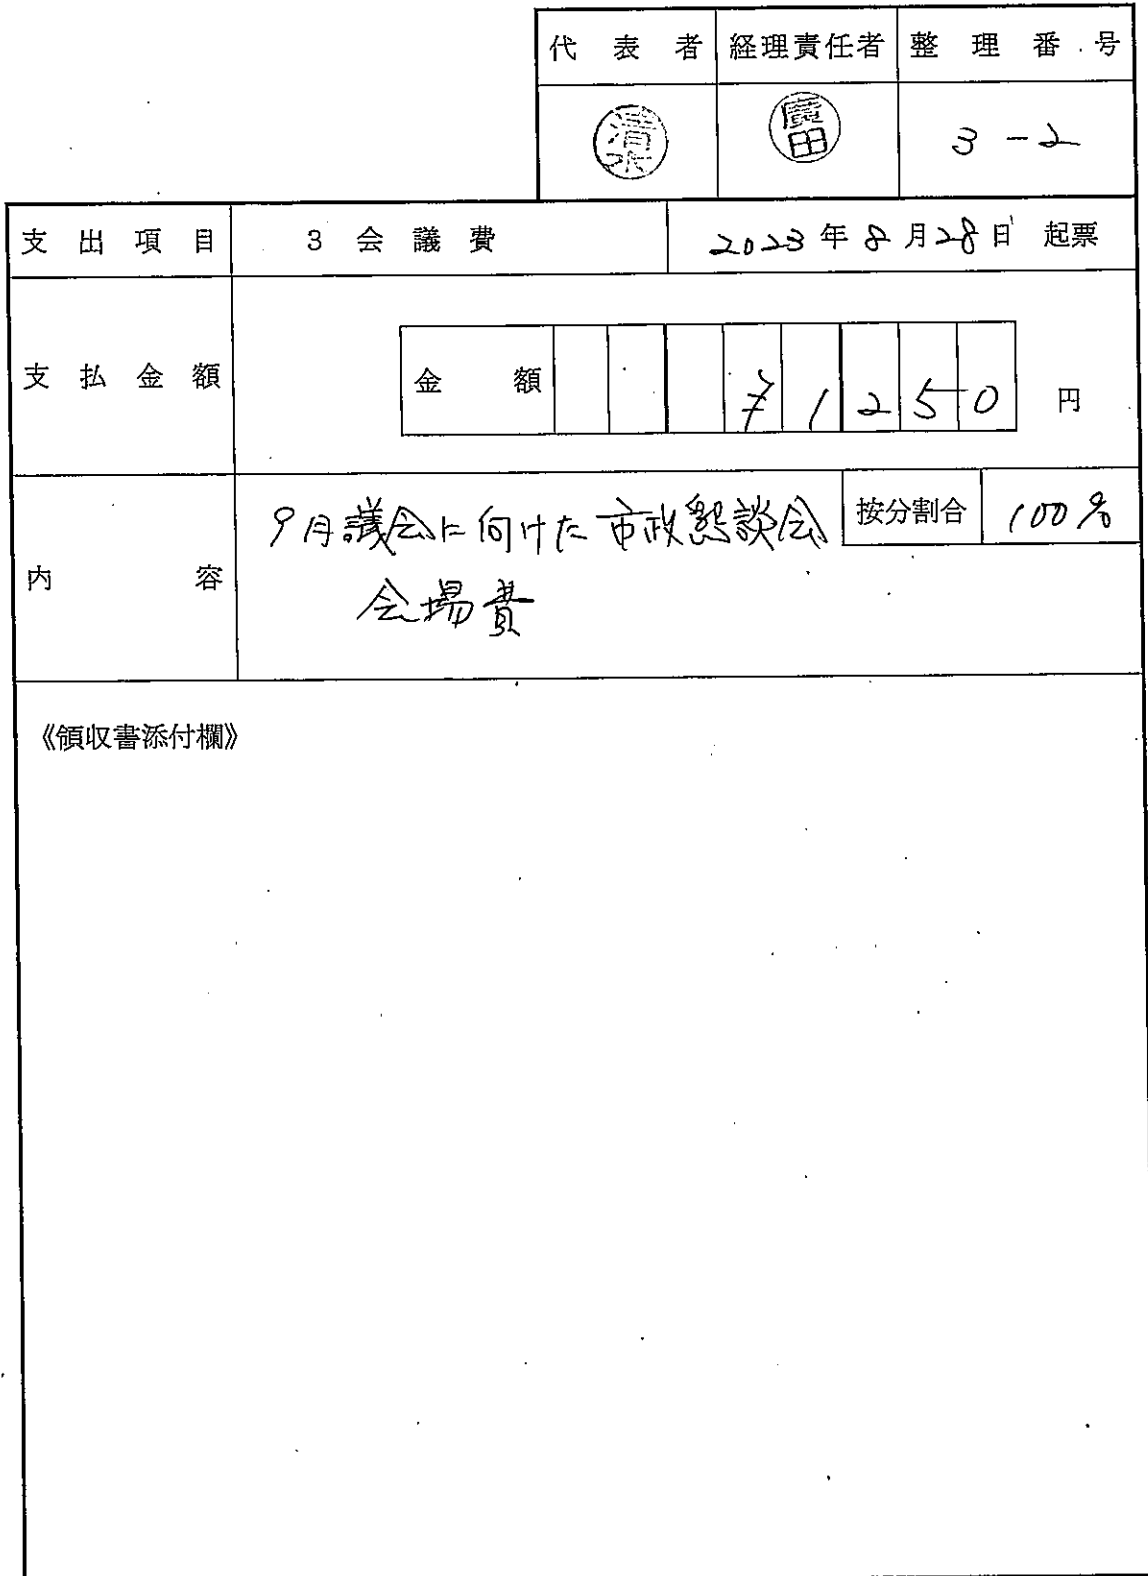 代表者 経理責任者 整理番号
清水 廣田 3-2
支出項目 3 会議費 2023年8月28日 起票
支払金額 金額 ¥1250 円
9月議会に向けた市政懇談会 按分割合 100%
内容
会場費
《領収書添付欄》